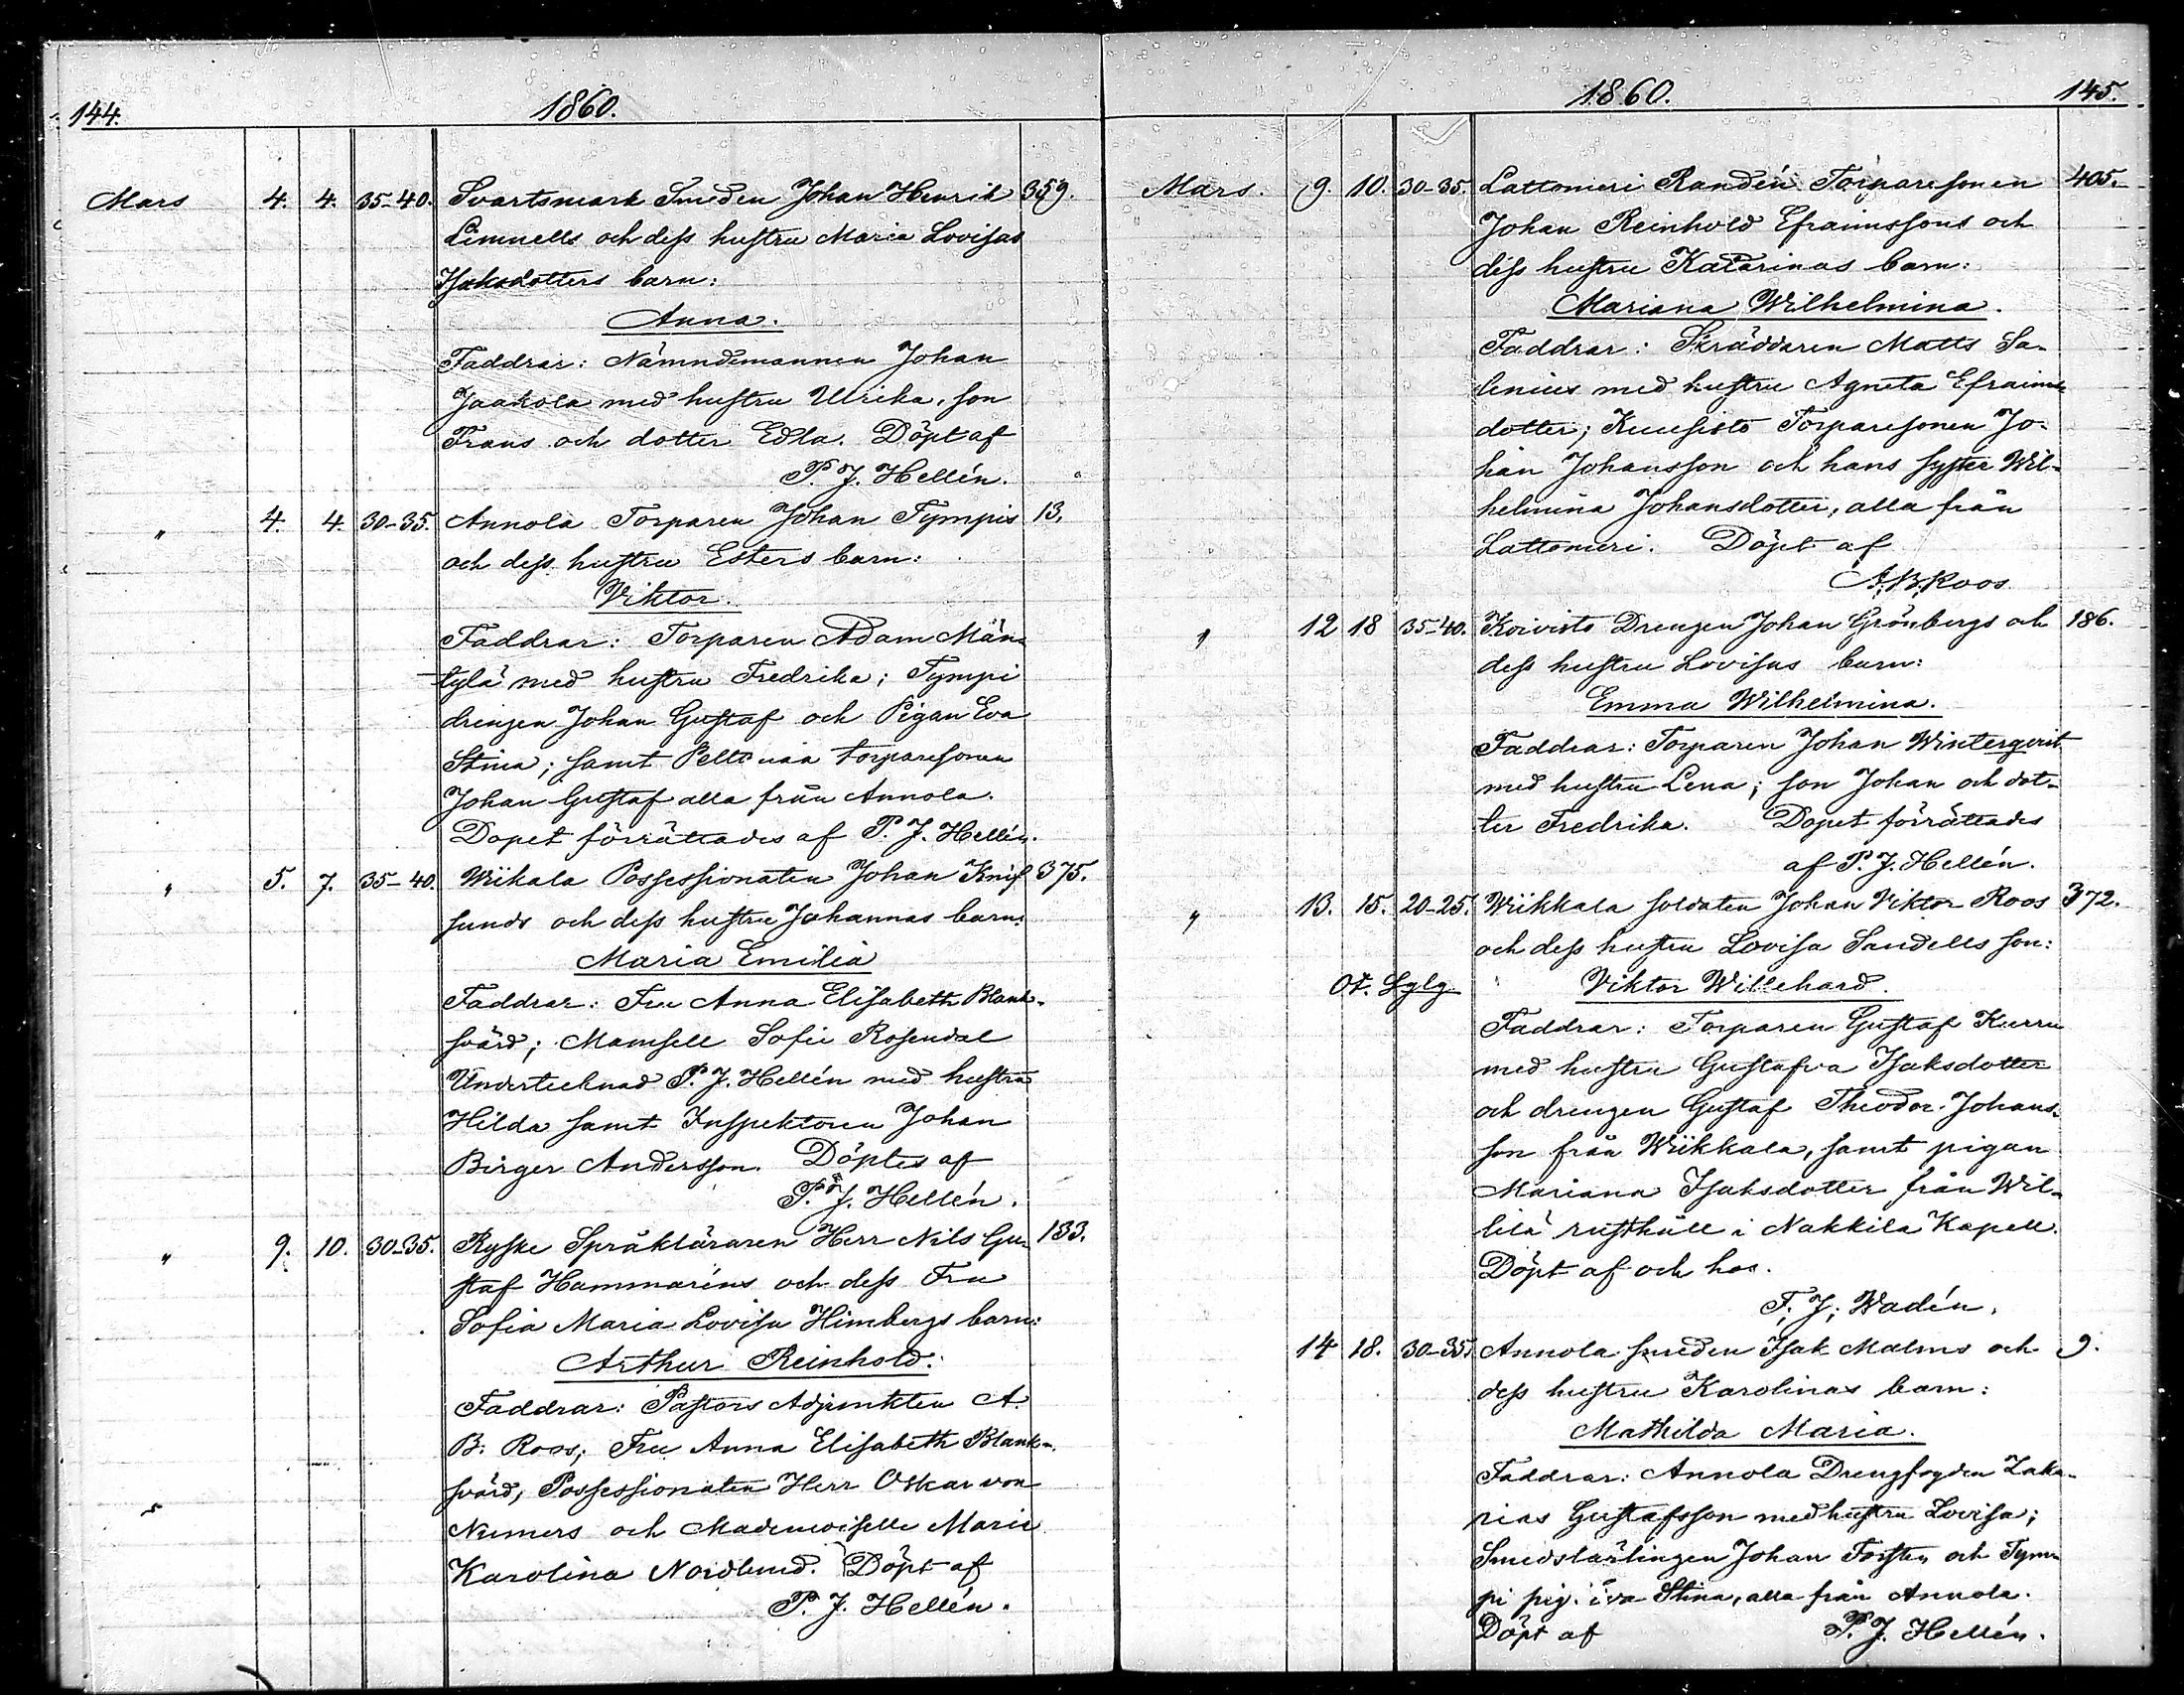 144. 1860.
Mars 4. 4. 35-40. Svartsmark Smeden Johan Henrik 359.
Limnells och dess hustru Maria Lovisas
Isaksdotters barn:
Anna.
Faddrar: Nämndemannen Johan
Jaakola med hustru Ulrika, son
Frans och dotter Edla. Döpt af
P. J. Hellén.
" 4. 4. 30-35. Annola Torparen Johan Tympis 13.
och dess hustru Esters barn:
Viktor.
Faddrar: Torparen Adam Män-
tylä med hustru Fredrika; Tympi
drengen Johan Gustaf och Pigan Eva
Stina; samt Peltomaa torparesonen
Johan Gustaf alla från Annola.
Dopet förrättades af P. J. Hellén.
" 5. 7. 35-40. Wiikala Possessionaten Johan Knif 375.
sunds och dess hustru Johannas barn:
Maria Emilia
Faddrar: Fru Anna Elisabeth Blank-
svärd; Mamsell Sofie Rosendal
Undertecknad P. J. Hellén med hustru
Hilda samt Inspektoren Johan
Birger Andersson. Döptes af
P. J. Hellén.
" 9. 10. 30-35. Ryske Språkläraren Herr Nils Gu- 183.
staf Hammaréns och dess Fru
Sofia Maria Lovisa Himbergs barn:
Arthur Reinhold.
Faddrar: Pastors Adjunkten A.
B. Roos; Fru Anna Elisabeth Blank-
svärd, Possessionaten Herr Oskar von
Numers och Mademoiselle Marie
Karolina Nordlund. Döpt af
P. J. Hellén.
1860. 145.
Mars. 9. 10. 30-35. Lattomeri Randén Torparesonen 405.
Johan Reinhold Efraimssons och
dess hustru Katarinas barn:
Mariana Wilhelmina.
Faddrar: Skräddaren Matts Sa-
lenius med hustru Agneta Efraims
dotter; Kuusisto Torparesonen Jo-
han Johansson och hans syster Wil-
helmina Johansdotter, alla från
Lattomeri. Döpt af
A. B. Roos
" 12 18 35-40. Koivisto Drengen Johan Grönbergs och 186.
dess hustru Lovisas barn:
Emma Wilhelmina.
Faddrar: Torparen Johan Winterqvist
med hustru Lena; son Johan och dot-
ter Fredrika. Dopet förrättades
af P. J. Hellén.
" 13. 15. 20-25. Wiikkala soldaten Johan Viktor Roos 372.
och dess hustru Lovisa Sandells son:
Viktor Willehard.
Faddrar: Torparen Gustaf Kurru
med hustru Gustafva Isaksdotter
och drengen Gustaf Theodor Johans-
son från Wiikkala, samt pigan
Mariana Isaksdotter från Wil-
lilä rusthåll i Nakkila Kapell.
Döpt af och hos.
F. J. Wadén.
14 18. 30-35. Annola smeden Isak Malms och 9.
dess hustru Karolinas barn:
Mathilda Maria.
Faddrar: Annola Drengfogden Zaka-
rias Gustafsson med hustru Lovisa;
Smedslärlingen Johan Forsten och Tym-
pi pig. Eva Stina, alla från Annola.
Döpt af P. J. Hellén.